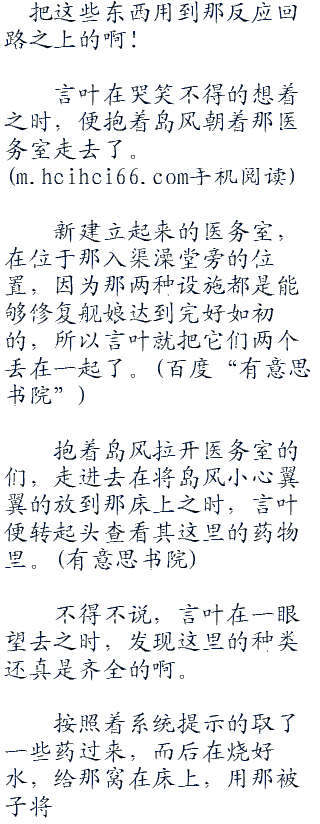 把这些东西用到那反应回
路之上的啊！
言叶在哭笑不得的想着
之时，便抱着岛风朝着那医
务室走去了。
(m.hcihci66.com手机阅读)
新建立起来的医务室，
在位于那入渠澡堂旁的位
置，因为那两种设施都是能
够修复舰娘达到完好如初
的，所以言叶就把它们两个
丢在一起了。(百度“有意思
书院”)
抱着岛风拉开医务室的
们，走进去在将岛风小心翼
翼的放到那床上之时，言叶
便转起头查看其这里的药物
里。(有意思书院)
不得不说，言叶在一眼
望去之时，发现这里的种类
还真是齐全的啊。
按照着系统提示的取了
一些药过来，而后在烧好
水，给那窝在床上，用那被
子将